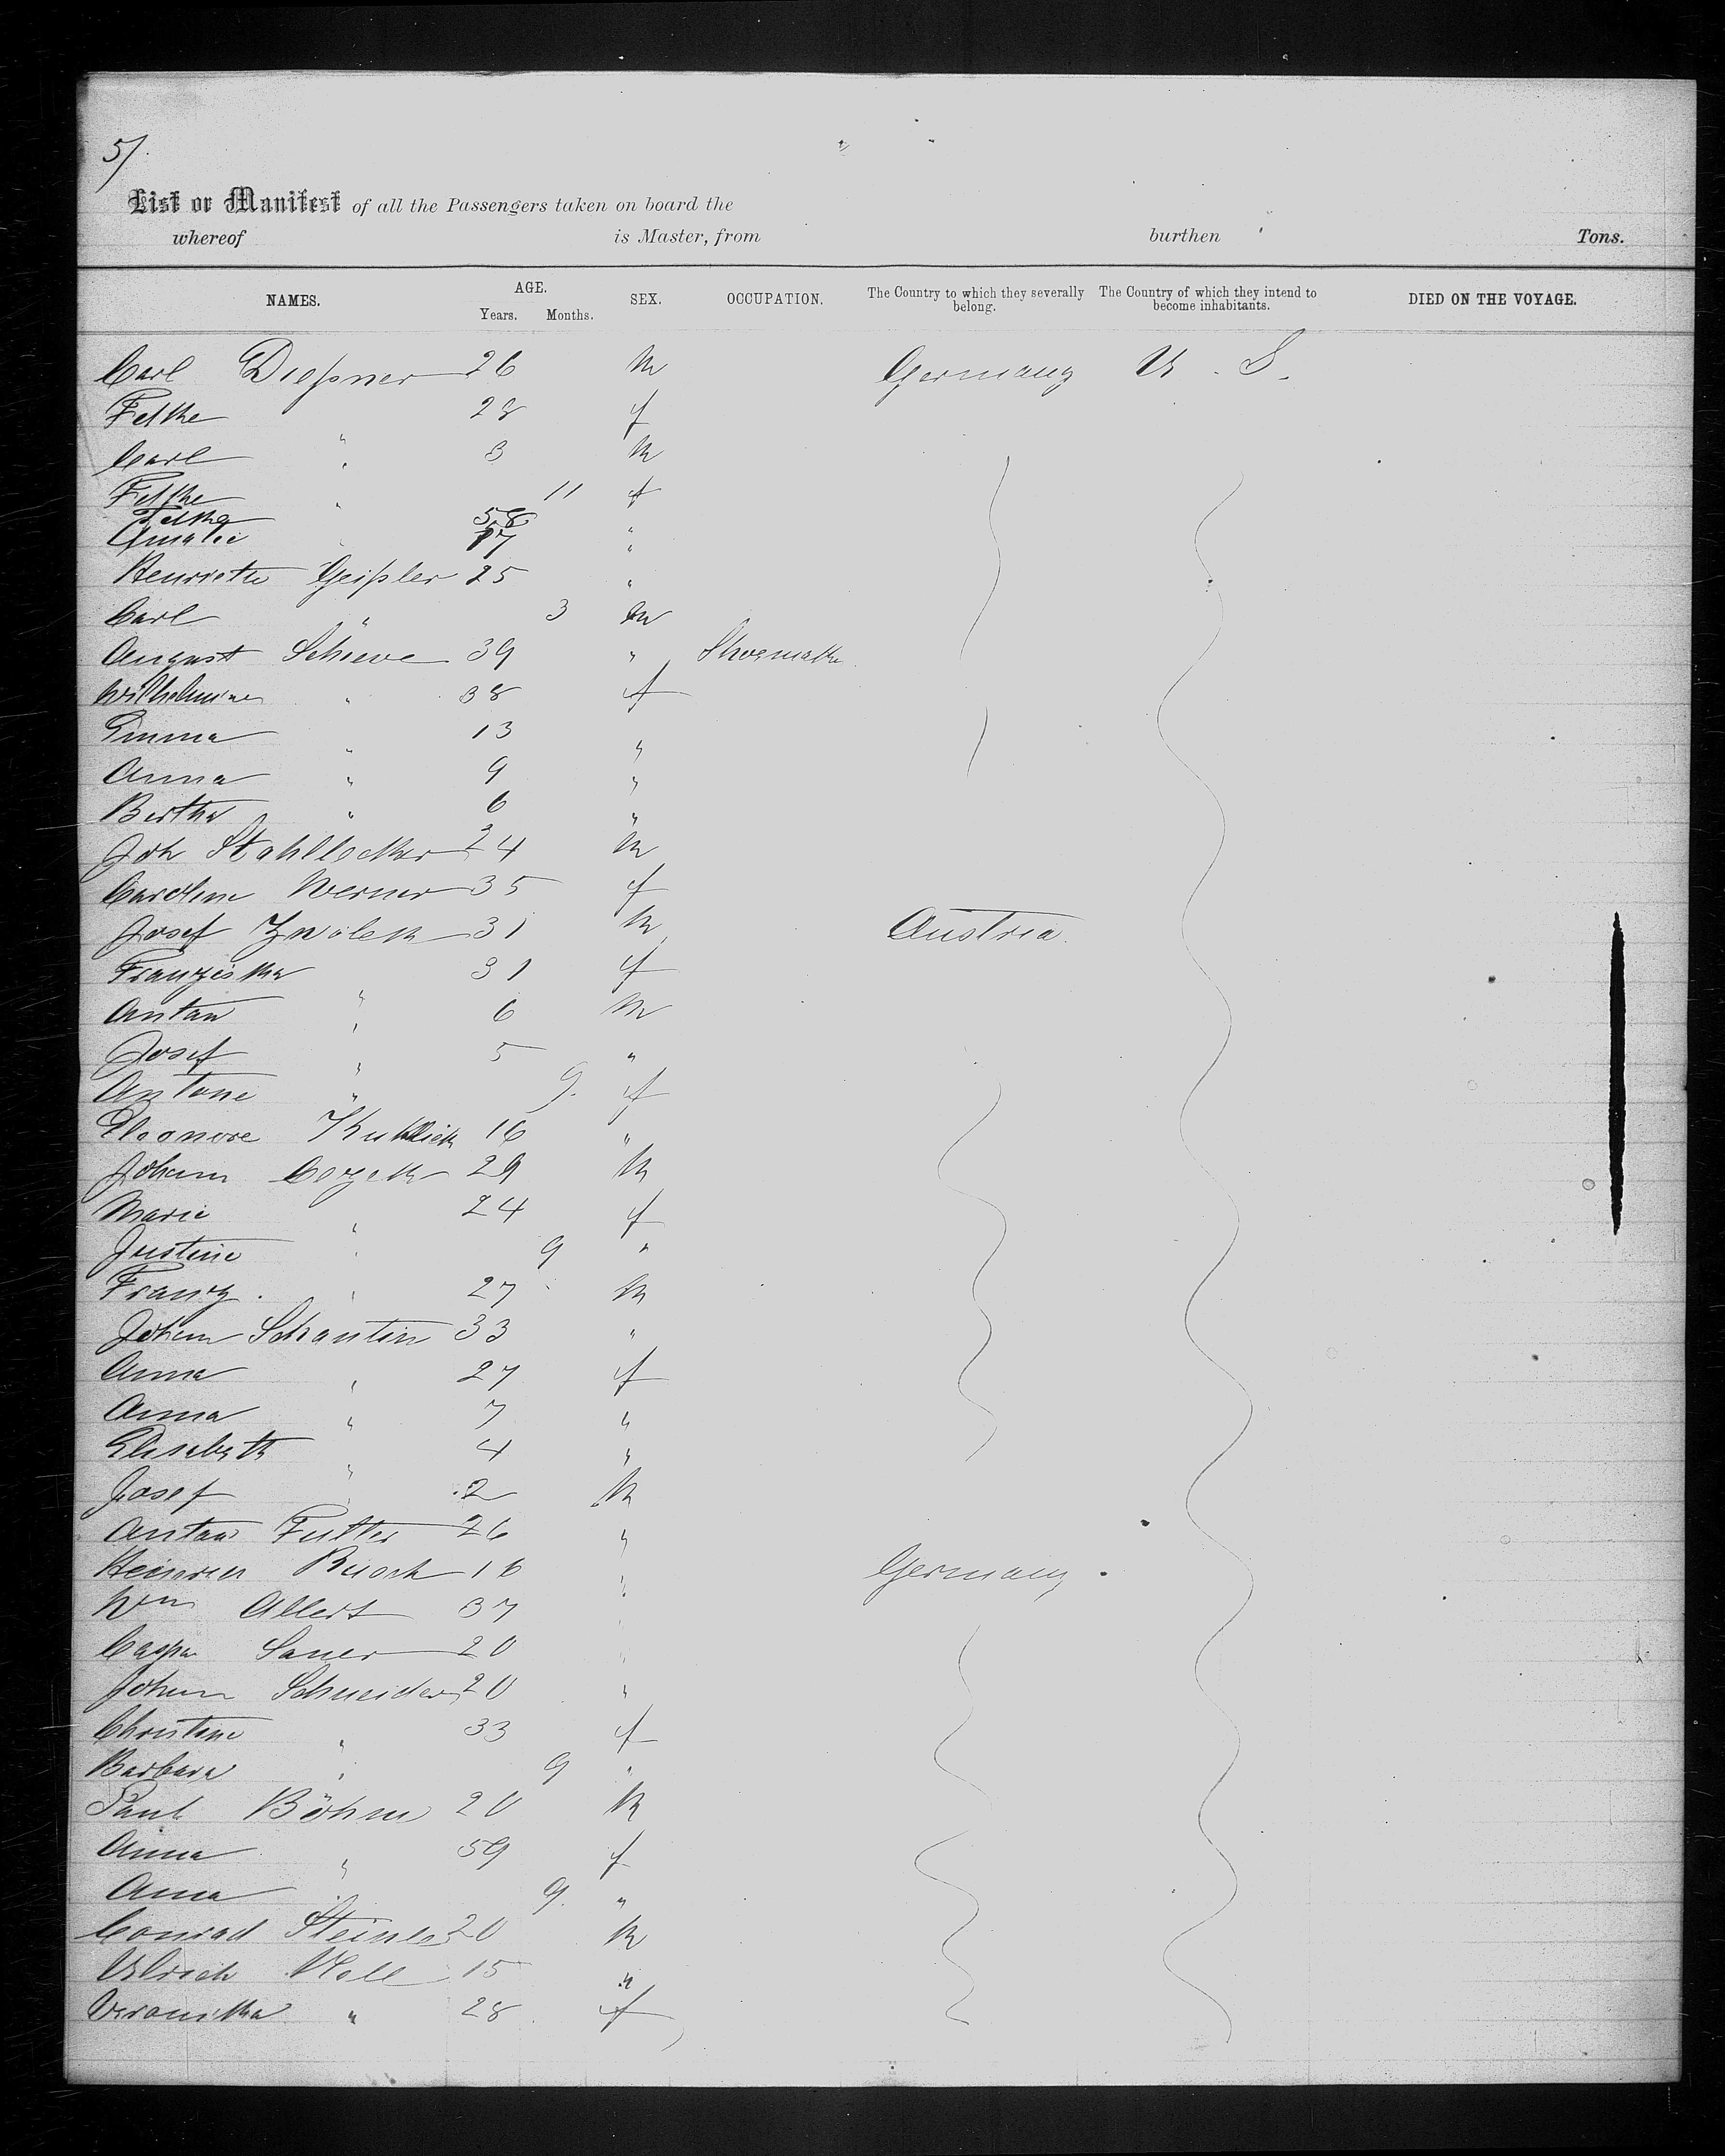 5/.
List or Manifest of all the Passengers taken on board the
whereof is Master, from burthen Tons.
NAMES. AGE. Years. Months. SEX. OCCUPATION. The Country to which they severally belong. The Country of which they intend to become inhabitants. DIED ON THE VOYAGE.
Carl Dießner 26 M Germany U. S.
Felke 28 f
Carl " 3 M
Felke " 11 f
Felke 58
Amalie 17 "
Henriette Geißler 25 "
Carl " 3 M
August Schieve 39 " Shoemaker
Wilhelmine " 38 f
Emma " 13 "
Anna " 9 "
Bertha " 6 "
Joh Stahllecker 24 M
Caroline Werner 35 f
Josef Zwolek 31 M Austria.
Franziska " 31 f
Anton " 6 M
Josef " 5 "
Antonie " 9. f
Eleonore 16 "
Johann Cozek 29 M
Marie " 24 f
Justine " 9 "
Franz " 27 M
Johann Schantin 33 "
Anna " 27 f
Anna " 7 "
Elisabeth " 4 "
Josef " 2 M
Anton Futter 26 "
Heinrich Busch 16 " Germany.
Wm Allert 37 "
Caspar Sauer 20 "
Johann Schneider 20 "
Christine " 33 f
Barbara " 9 "
Paul Böhm 20 M
Anna " 59 f
Anna " 9. "
Conrad Steinle 20 M
Ulrich Noll 15 "
Veronika " 28 f